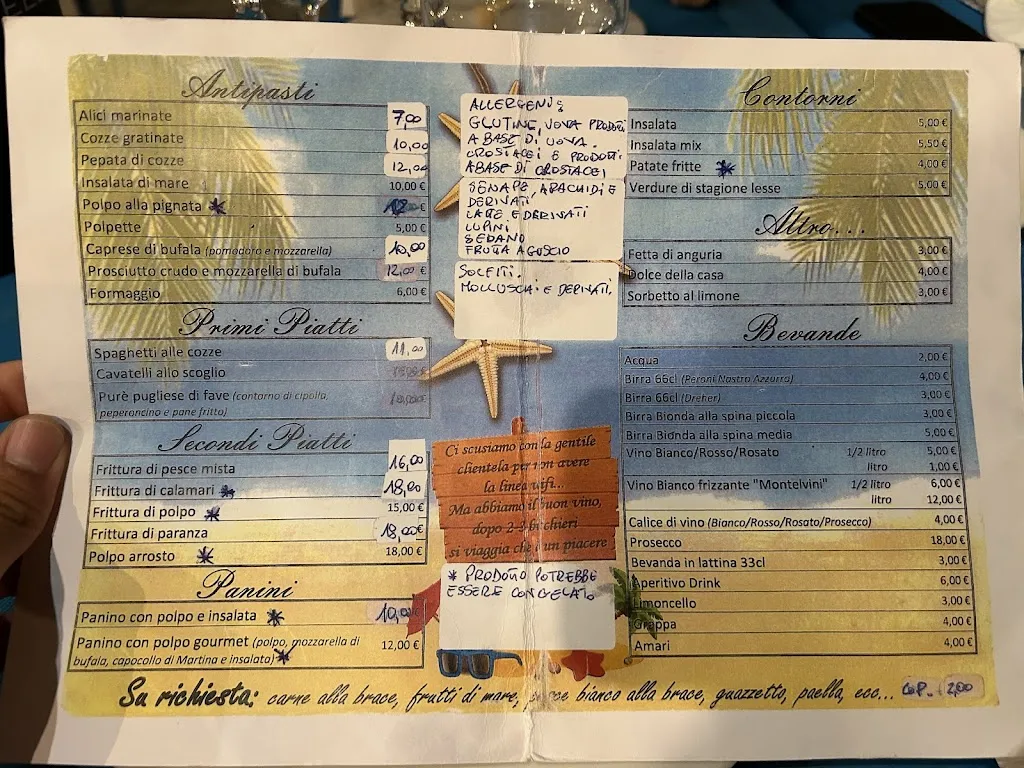 Antipasti
Alici marinate 7,00
Cozze gratinate 10,00
Pepata di cozze 12,00
Insalata di mare 10,00 €
Polpo alla pignata * 12 €
Polpette 5,00 €
Caprese di bufala (pomodoro e mozzarella) 10,00
Prosciutto crudo e mozzarella di bufala 12,00 €
Formaggio 6,00 €
Primi Piatti
Spaghetti alle cozze 11,00
Cavatelli allo scoglio
Purè pugliese di fave (contorno di cipolla,
peperoncino e pane fritto)
Secondi Piatti
Frittura di pesce mista 16,00
Frittura di calamari * 18,00
Frittura di polpo * 15,00 €
Frittura di paranza 18,00 €
Polpo arrosto * 18,00 €
Panini
Panino con polpo e insalata * 10,00
Panino con polpo gourmet (polpo, mozzarella di 12,00 €
bufala, capocollo di Martina e insalata) *
ALLERGENI:
GLUTINE, UOVA PRODOTTI
A BASE DI UOVA.
CROSTACEI E PRODOTTI
A BASE DI CROSTACEI
SENAPE, ARACHIDI E
DERIVATI
LATTE E DERIVATI
LUPINI
SEDANO
FRUTTA A GUSCIO
SOLFITI.
MOLLUSCHI E DERIVATI.
Ci scusiamo con la gentile
clientela per non avere
la linea wifi...
Ma abbiamo il buon vino,
dopo 2-3 bicchieri
si viaggia che è un piacere
* PRODOTTO POTREBBE
ESSERE CONGELATO
Contorni
Insalata 5,00 €
Insalata mix 5,50 €
Patate fritte * 4,00 €
Verdure di stagione lesse 5,00 €
Altro...
Fetta di anguria 3,00 €
Dolce della casa 4,00 €
Sorbetto al limone 3,00 €
Bevande
Acqua 2,00 €
Birra 66cl (Peroni Nastro Azzurro) 4,00 €
Birra 66cl (Dreher) 3,00 €
Birra Bionda alla spina piccola 3,00 €
Birra Bionda alla spina media 5,00 €
Vino Bianco/Rosso/Rosato 1/2 litro 5,00 €
litro 1,00 €
Vino Bianco frizzante "Montelvini" 1/2 litro 6,00 €
litro 12,00 €
Calice di vino (Bianco/Rosso/Rosato/Prosecco) 4,00 €
Prosecco 18,00 €
Bevanda in lattina 33cl 3,00 €
Aperitivo Drink 6,00 €
Limoncello 3,00 €
Grappa 4,00 €
Amari 4,00 €
Su richiesta: carne alla brace, frutti di mare, pesce bianco alla brace, guazzetto, paella, ecc... COP. 2,00